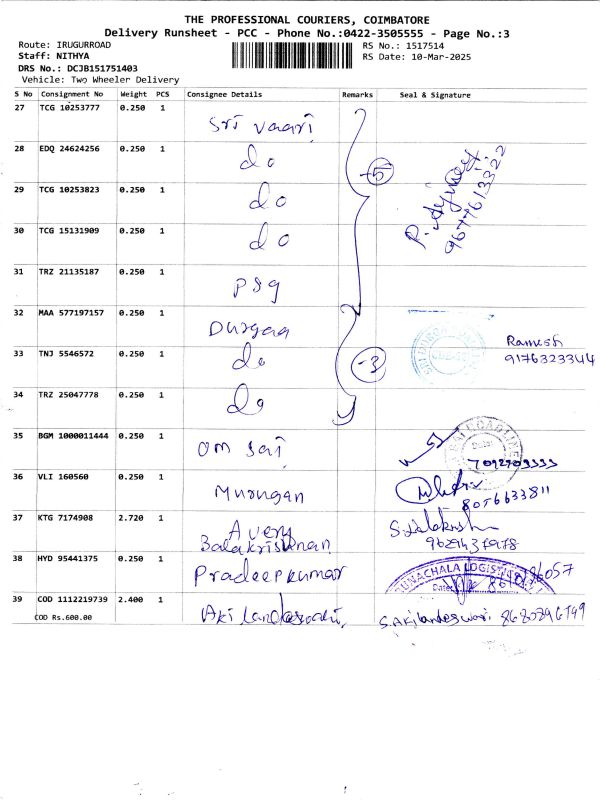 THE PROFESSIONAL COURIERS, COIMBATORE
Delivery Runsheet - PCC - Phone No.:0422-3505555 - Page No.:3
Route: IRUGURROAD
Staff: NITHYA
DRS No.: DCJB151751403
Vehicle: Two Wheeler Delivery
RS No.: 1517514
RS Date: 10-Mar-2025
S No Consignment No Weight PCS Consignee Details Remarks Seal & Signature
27 TCG 10253777 0.250 1 Sri Vaari
28 EDQ 24624256 0.250 1 do -5
29 TCG 10253823 0.250 1 do 9677613322
30 TCG 15131909 0.250 1 do
31 TRZ 21135187 0.250 1 psg
32 MAA 577197157 0.250 1 Durgaa
33 TNJ 5546572 0.250 1 do -3 Ramesh
9176323344
34 TRZ 25047778 0.250 1 do
35 BGM 1000011444 0.250 1 Om Sai
36 VLI 160560 0.250 1 Murugan 8056633811
37 KTG 7174908 2.720 1 Avery
Balakrishnan S.Balakrish
9629437978
38 HYD 95441375 0.250 1 Pradeepkumar
ARUNACHALA LOGISTICS
39 COD 1112219739 2.400 1 Akilandeswari, S.Akilandeswari 8680896749
COD Rs.600.00